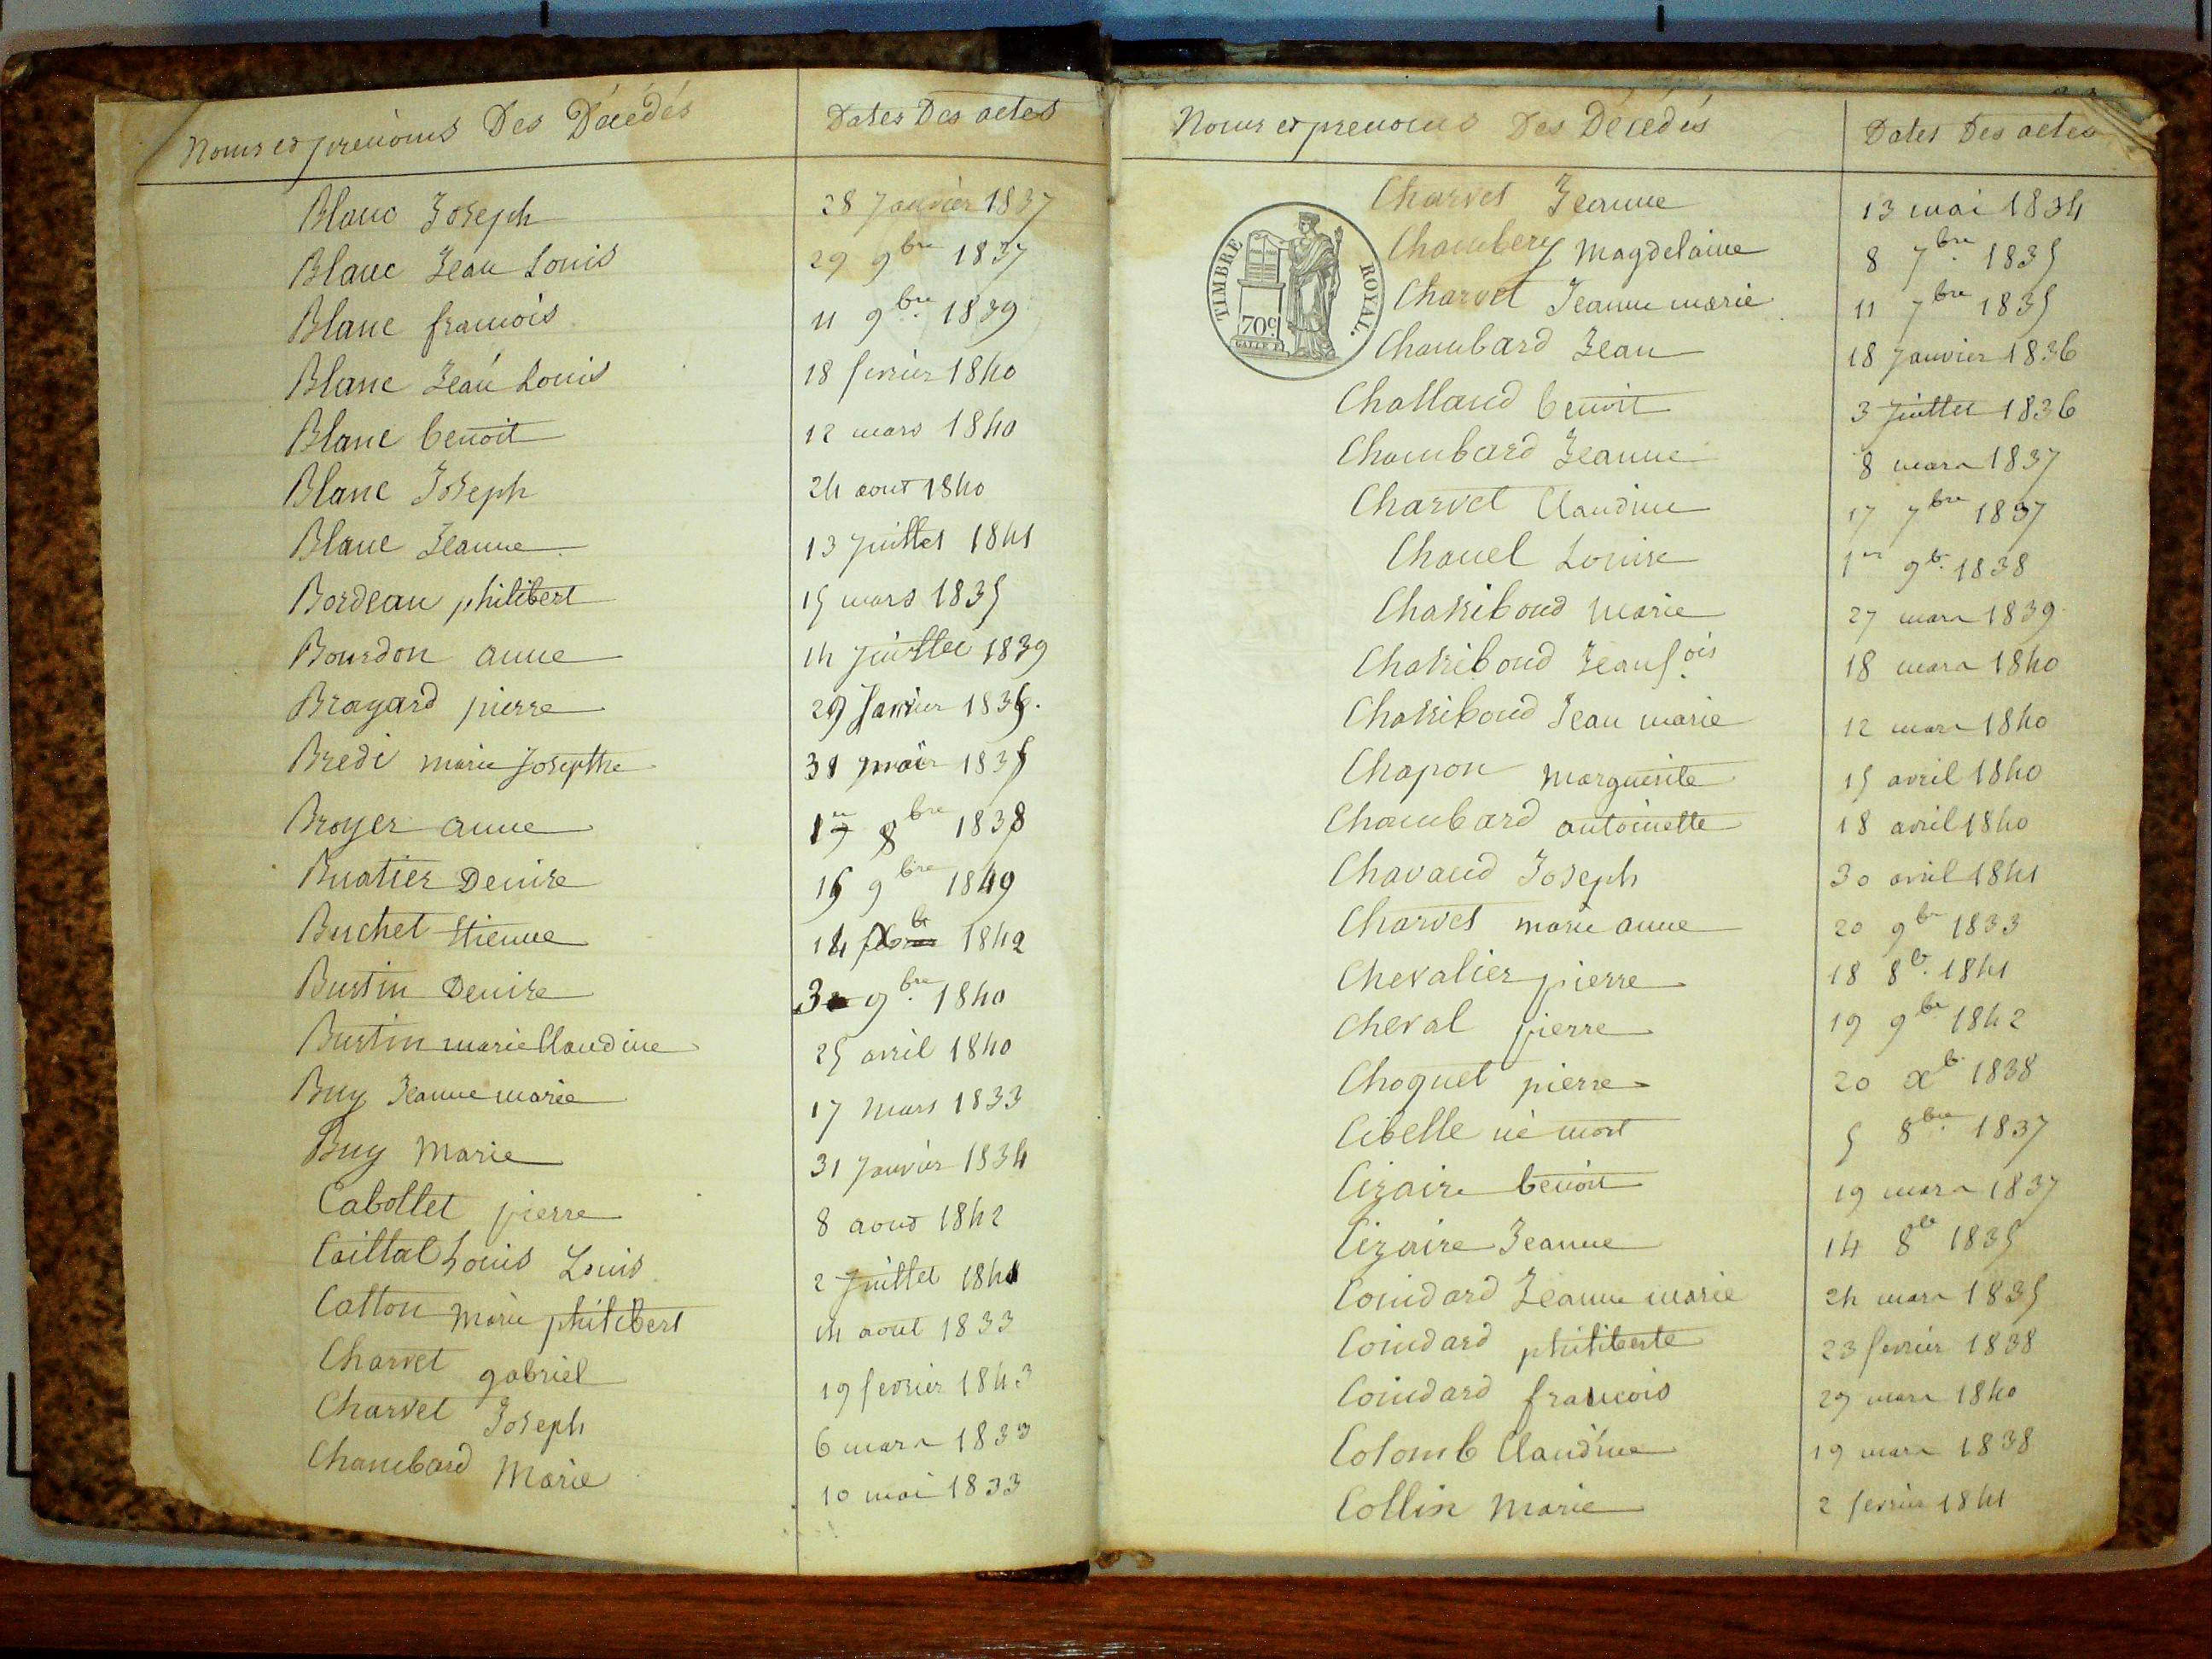 Noms et prenoms Des Décédés Dates Des actes
Blanc Joseph 28 Janvier 1837
Blanc Jean Louis 29 9bre 1837
Blanc francois 11 9bre 1839
Blanc Jean Louis 18 fevrier 1840
Blanc benoit 12 mars 1840
Blanc Joseph 24 aout 1840
Blanc Jeanne 13 Juillet 1841
Bordeau philibert 15 mars 1835
Bourdon anne 14 Juillet 1839
Bragard pierre 29 Janvier 1836.
Bredi marie Josepthe 31 mai 1835
Broyer anne 1er 8bre 1838
Buatier Denise 16 9bre 1849
Buchet Etienne 14 Xbr 1842
Bustin Denise 3 9bre 1840
Bustin marie Claudine 25 avril 1840
Buy Jeanne marie 17 Mars 1833
Buy Marie 31 Janvier 1834
Cabollet pierre 8 aout 1842
Caillat Louis Louis 2 Juillet 1841
Catton marie philibert 14 aout 1833
Charvet gabriel 19 fevrier 1843
Charvet Joseph 6 mars 1833
Chambard Marie 10 mai 1833
Noms et prenoms Des Décédés Dates Des actes
TIMBRE ROYAL.
70c.
Charvet Jeanne 13 mai 1834
Chambery Magdelaine 8 7bre 1835
Charvet Jeanne marie 11 7bre 1835
Chambard Jean 18 Janvier 1836
Challand benoit 3 Juillet 1836
Chambard Jeanne 8 mars 1837
Charvet Claudine 17 7bre 1837
Chanel Louise 1er 9b. 1838
Chakiboud Marie 27 mars 1839
Chakiboud Jean fois 18 mars 1840
Chakiboud Jean marie 12 mars 1840
Chapon Marguerite 15 avril 1840
Chambard antoinette 18 avril 1840
Chavand Joseph 30 avril 1841
Charvet marie anne 20 9br 1833
Chevalier pierre 18 8b. 1841
Cheval pierre 19 9br 1842
Choquet pierre 20 xb. 1838
Cibelle né mort 5 8bre 1837
Cizaire benoit 19 mars 1837
Cizaire Jeanne 14 8b 1835
Coindard Jeanne marie 24 mars 1835
Coindard philiberte 23 fevrier 1838
Coindard francois 29 mars 1840
Colomb Claudine 19 mars 1838
Collin Marie 2 fevrier 1841